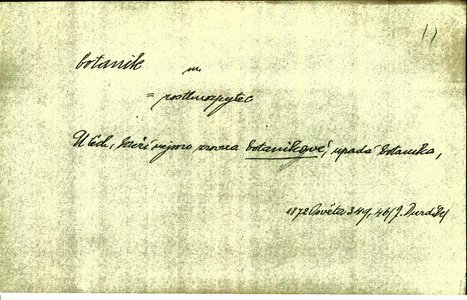 botanik m.
= rostlinozpytec
U lid, kteří nejsou zrovna botanikové, upadá botanika,
1872 Osvěta 349, 46/J. Durdík/